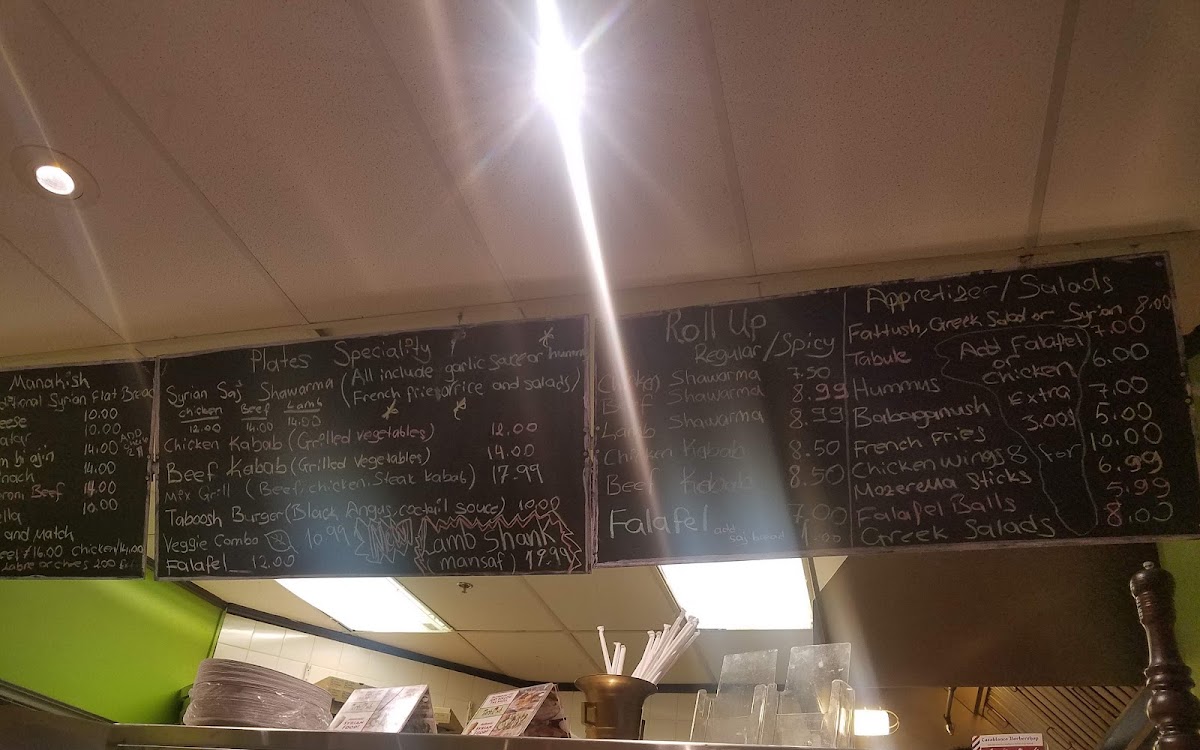 Manahish
tional Syrian Flat Bread
eese 10.00
10.00
atar 14.00
m b'ajin 14.00
inach 14.00
roni Beef 10.00
ella
and match
eef /16.00 chicken/14.00
Plates Speciality
Syrian Saj Shawarma (All include garlic sace or humm
(French fries, rice and salads)
chicken Beef Lamb
12.00 14.00 14.00
Chicken Kabab (Grilled vegetables) 12.00
Beef Kabab (Grilled vegetables) 14.00
Mix Grill (Beef, chicken, steak kabab) 17.99
Taboosh Burger (Black Angus, cocktail souce) 10.00
Veggie Combo 10.99
Falafel 12.00
Lamb Shank
mansaf) 19.99
Roll Up
Regular/Spicy
Chicken Shawarma 7.50
Beef Shawarma 8.99
Lamb Shawarma 8.99
Chicken Kabab 8.50
Beef Kabab 8.50
Falafel 7.00
add saj bread 1.00
Appretizer/Salads
Fattush, Greek Salad or Syrian 8.00
Tabule 7.00
Hummus 6.00
Babagamush 7.00
French Fries 5.00
Chicken wings 8 for 10.00
Mozerella Sticks 6.99
Falafel Balls 5.99
Greek Salads 8.00
Add Falafel
or
Chicken
Extra
3.00